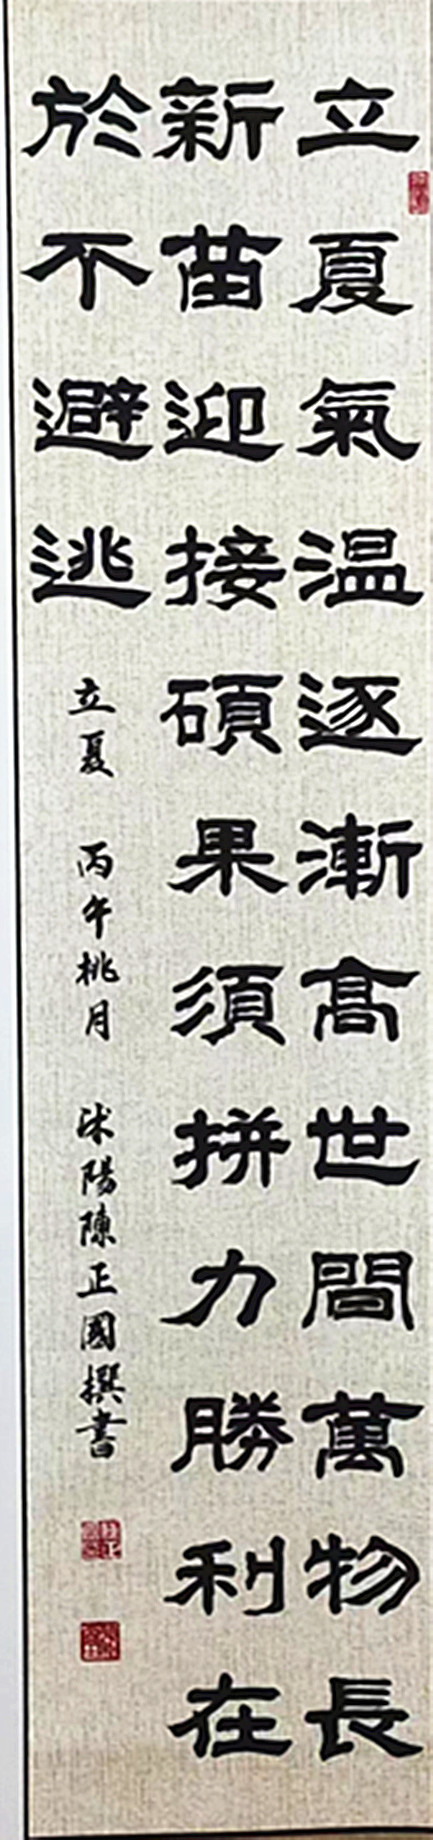 立夏氣温逐漸高世間萬物長
新苗迎接碩果須拼力勝利在
於不避逃
立夏 丙午桃月 沭陽陳正國撰書